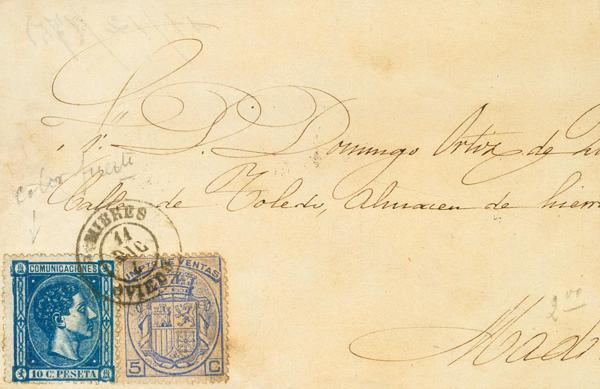 Sr. D. Domingo Ortiz de
Calle de Toledo, Almacen de hierro
Madri
color
MIERES
11
DIC
OVIEDO
COMUNICACIONES
10 C. PESETA
IMPTO DE VENTAS
5 C
2 00